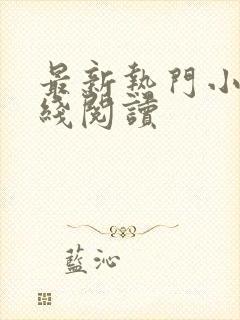 最新熱門小
綫閱讀
藍沁